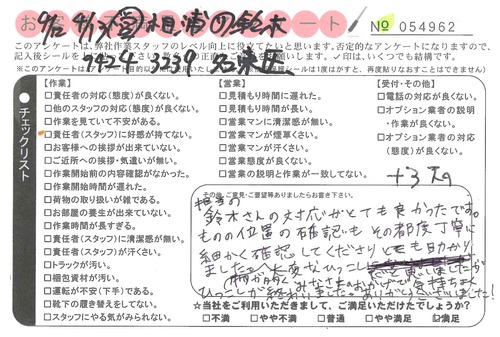 お客様アンケート
№ 054962
このアンケートは、弊社作業スタッフのレベル向上に役立てたいと思います。否定的なアンケートになりますので、
✓印は、いくつでも結構です。
【作業】
□責任者の対応(態度)が良くない。
□他のスタッフの対応(態度)が良くない。
□作業を見ていて不安がある。
□責任者(スタッフ)に好感が持てない。
□お客様への挨拶が出来ていない。
□ご近所への挨拶・気遣いが無い。
□作業開始前の内容確認がなかった。
□作業開始時間が遅れた。
□荷物の取り扱いが雑である。
□お部屋の養生が出来ていない。
□作業時間が長すぎる。
□責任者(スタッフ)に清潔感が無い。
□責任者(スタッフ)が汗くさい。
□トラックが汚い。
□梱包資材が汚い。
□運転が不安(下手)である。
□靴下の履き替えをしてない。
□スタッフにやる気がみられない。
【営業】
□見積もり時間に遅れた。
□見積もり時間が長い。
□営業マンに清潔感が無い。
□営業マンが煙草くさい。
□営業マンが汗くさい。
□営業態度が良くない。
□営業の説明と作業が一致してない。
【受付・その他】
□電話の対応が良くない。
□オプション業者の説明
・作業が良くない。
□オプション業者の対応
(態度)が良くない。
チェックリスト
その他、ご意見・ご要望等ありましたらお書き下さい。
担当の
鈴木さんの対応がとても良かったです。
ものの位置の確認もその都度丁寧に
細かく確認してくださりとても助かり
ました。
★当社をご利用いただきまして、ご満足いただけたでしょうか?
□不満 □やや不満 □普通 □やや満足 □満足